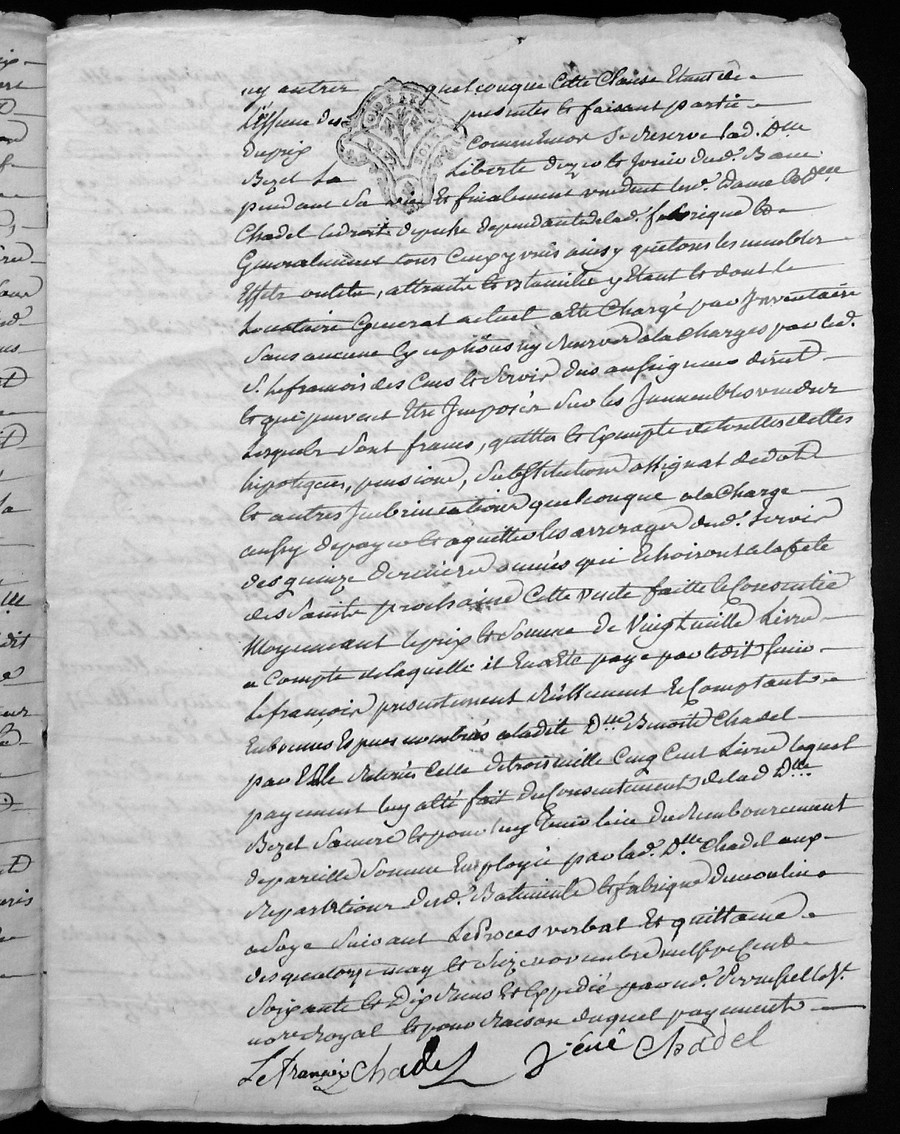 ny autres quelconque Cette Clause Etant de
L'essence des presentes et faisant partie
du prix Comme encor Se Reserve lad. Dlle
Bozet La Liberté
pendant Sa vie et finalement vendent lesd. Dame et Dlle
Chadel le droit de peche dependante de lad. fabrique et
Generalement tous Compris ainsy que tous les meubles
Effets outils, attraits et ustancilles y Etant et dont le
Locataire General actuel a été Chargé par Inventaire
Sans aucune Exceptions ny Reserver a la Charges par led.
S. Lefrancois des Cens et Servis dus au Seigneur direct
et qui peuvent Etre Imposés Sur les Immeubles vendus
Lesquels Sont francs, quittes et Exempts de touttes dettes
hipoteques, pensions, Substitutions assignat de dot
et autres Inderinations quelconque a la Charge
aussy de payer et aquitter les arrerages dud. Servis
des quinze dernieres années qui Echoiront a la fete
des Saints prochaine Cette vente faitte et Consentie
Moyennant le prix et Somme de Vingt mille Livres
a Compte de laquelle il En a été payé par ledit Sieur
Lefrancois presentement Réellement et Comptant
En bonnes Especes nombrés a ladite Dlle Benoite Chadel
par Elle Retirés Celle de trois mille Cinq Cent Livres lequel
payement luy a été fait du Consentement de lad. Dlle
Bozet Sa mere et pour luy tenir lieu du Remboursement
de pareille Somme Employée par lad. Dlle Chadel aux
Reparations dud. Batiments et fabrique du moulin
a Soye Suivant Le Proces verbal Et quittance
des quatorze may et Seize novembre mil sept Cent
Soixante et Dix Reçus et Expedié par
no.re Royal et pour Raison duquel payement
Le françois Chadel Chadel